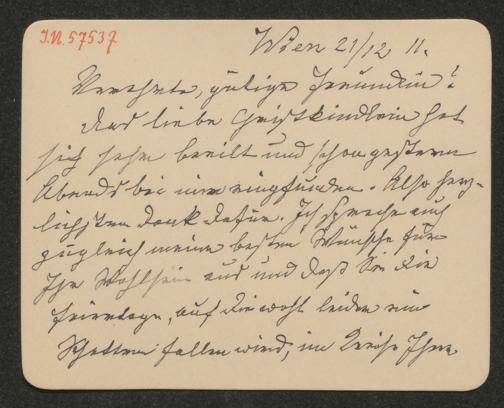 I.N. 57537
Wien 21/12 11.
Verehrte, gütige Freundin!
Das liebe Christkindlein hat
sich sehr beeilt und schon gestern
Abends bei mir eingefunden. Also herz-
lichsten Dank dafür. Ich spreche auch
zugleich meine besten Wünsche für
Ihr Wohlsein aus und daß Sie die
Feiertage, auf die wohl leider ein
Schatten fallen wird, im Kreise Ihrer